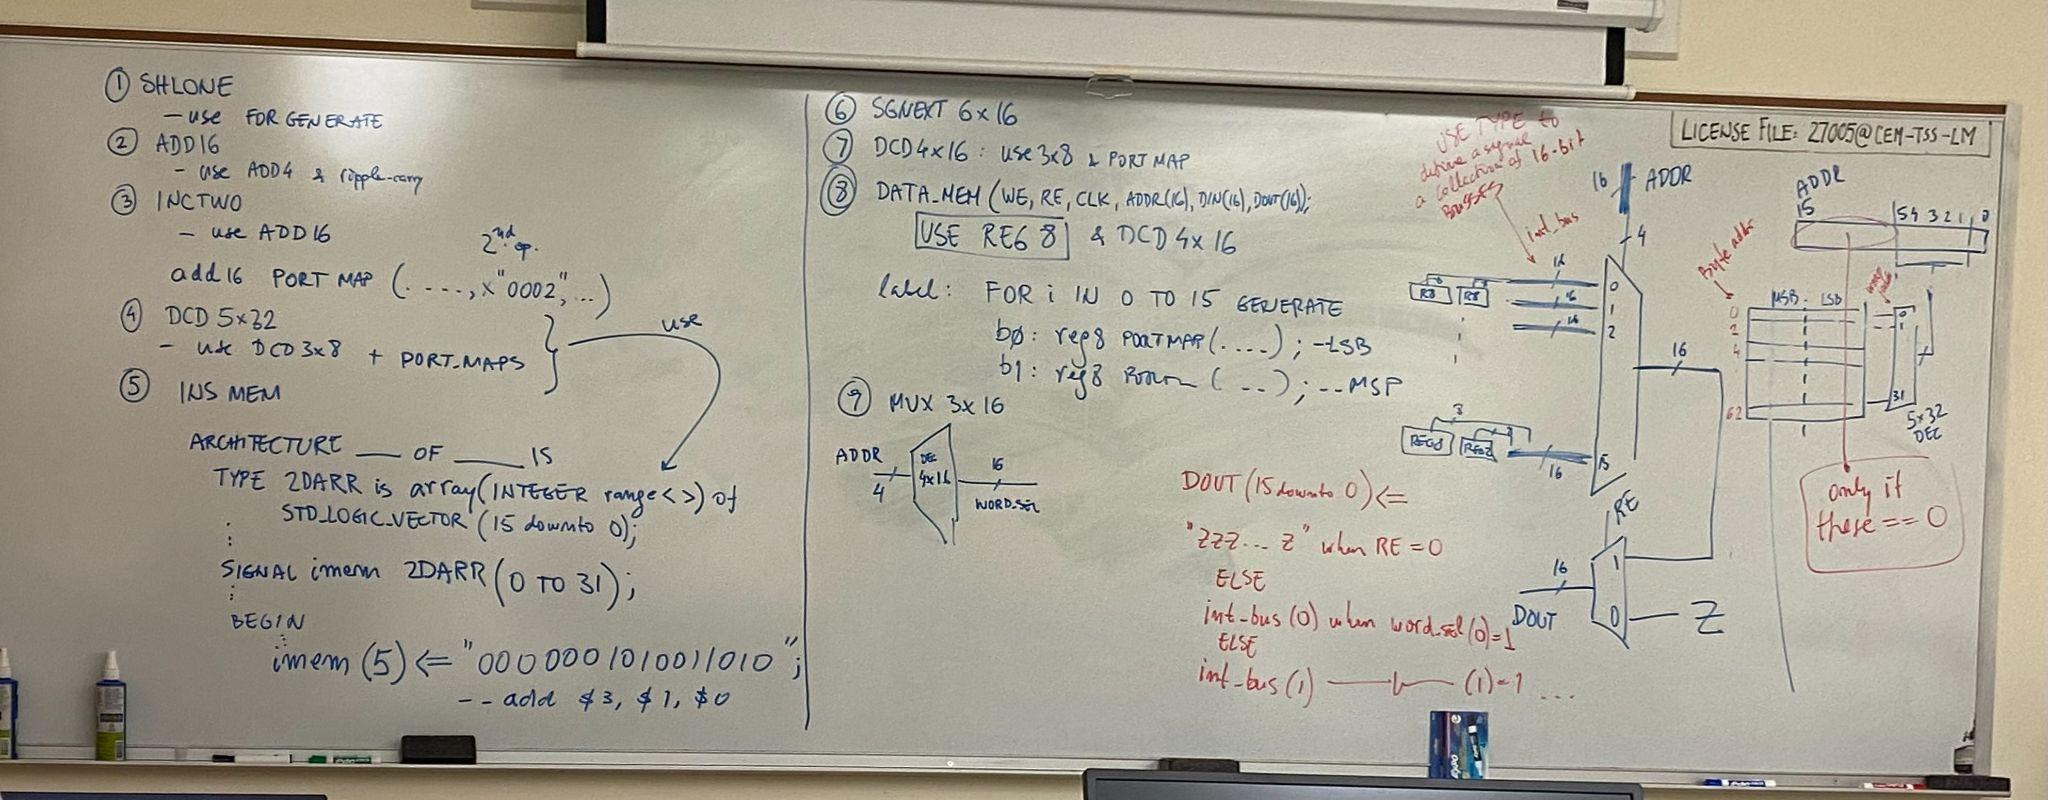 ① SHLONE
- use FOR GENERATE
② ADD16
- use ADD4 & ripple-carry
③ INCTWO
- use ADD16
2nd op.
add16 PORT MAP (....., x"0002", ...)
④ DCD 5x32
- use DCD 3x8 + PORT_MAPS
use
⑤ INS MEM
ARCHITECTURE ___ OF ____ IS
TYPE 2DARR is array(INTEGER range<>) of
STD_LOGIC_VECTOR (15 downto 0);
:
SIGNAL imem 2DARR (0 TO 31);
:
BEGIN
:
imem (5) <= "0000001010011010";
-- add $3, $1, $0
⑥ SGNEXT 6x16
⑦ DCD4x16: use 3x8 & PORT MAP
⑧ DATA_MEM (WE, RE, CLK, ADDR(16), DIN(16), DOUT(16));
USE REG 8 & DCD 4x16
label: FOR i IN 0 TO 15 GENERATE
b0: reg8 PORTMAP (....); -LSB
b1: reg8 (...); --MSP
⑨ MUX 3x16
ADDR
4
DEC
4x16
16
WORD_SEL
USE TYPE to
define a signal
a collection of 16-bit
Busses
int_bus
16
ADDR
4
R8
R8
16
0
16
1
16
2
8
REG8
16
15
16
RE
1
0
16
DOUT
Z
DOUT (15 downto 0) <=
"ZZZ... Z" when RE = 0
ELSE
int_bus (0) when word_sel (0)=1
ELSE
int_bus (1) (1)=1 ...
LICENSE FILE: 27005@CEM-TSS-LM
ADDR
15
5 4 3 2 1 0
Byte addr
MSB
LSB
0
2
4
62
0
1
31
5x32
DEC
only if
these == 0